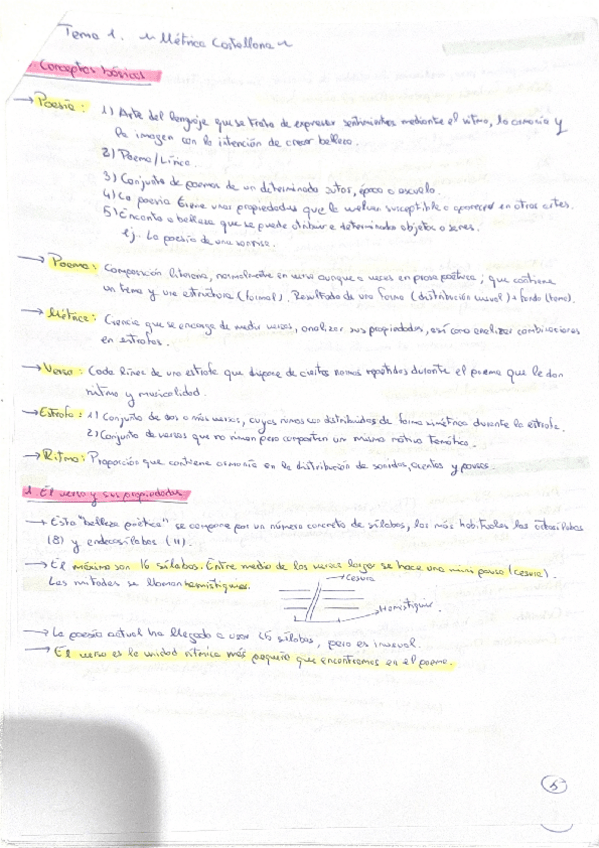 Tema 1. ~ Métrica Castellana ~
Conceptos básicos
→ Poesía: 1) Arte del lenguaje que se trata de expresar sentimientos mediante el ritmo, la armonía y
la imagen con la intención de crear belleza.
2) Poema/Lírica.
3) Conjunto de poemas de un determinado autor, época o escuela.
4) La poesía tiene unas propiedades que la vuelven susceptible a aparecer en otras artes.
5) Encanto o belleza que se puede atribuir a determinados objetos o seres.
Ej. La poesía de una sonrisa.
→ Poema: Composición literaria, normalmente en verso aunque a veces en prosa poética; que contiene
un tema y una estructura (formal). Resultado de una forma (distribución visual) + fondo (tema).
→ Métrica: Ciencia que se encarga de medir versos, analizar sus propiedades, así como analizar combinaciones
en estrofas.
→ Verso: Cada línea de una estrofa que dispone de ciertas normas repetidas durante el poema que le dan
ritmo y musicalidad.
→ Estrofa: 1) Conjunto de dos o más versos, cuyas rimas son distribuidas de forma simétrica durante la estrofa.
2) Conjunto de versos que no riman pero comparten un mismo motivo temático.
→ Ritmo: Proporción que contiene armonía en la distribución de sonidos, acentos y pausas.
1. El verso y sus propiedades
→ Esta "belleza poética" se compone por un número concreto de sílabas, los más habituales los octosílabos
(8) y endecasílabos (11).
→ El máximo son 16 sílabas. Entre medio de los versos largos se hace una mini pausa (cesura).
Las mitades se llaman hemistiquios.
→ Cesura
→ Hemistiquios.
→ La poesía actual ha llegado a usar 65 sílabas, pero es inusual.
→ El verso es la unidad rítmica más pequeña que encontramos en el poema.